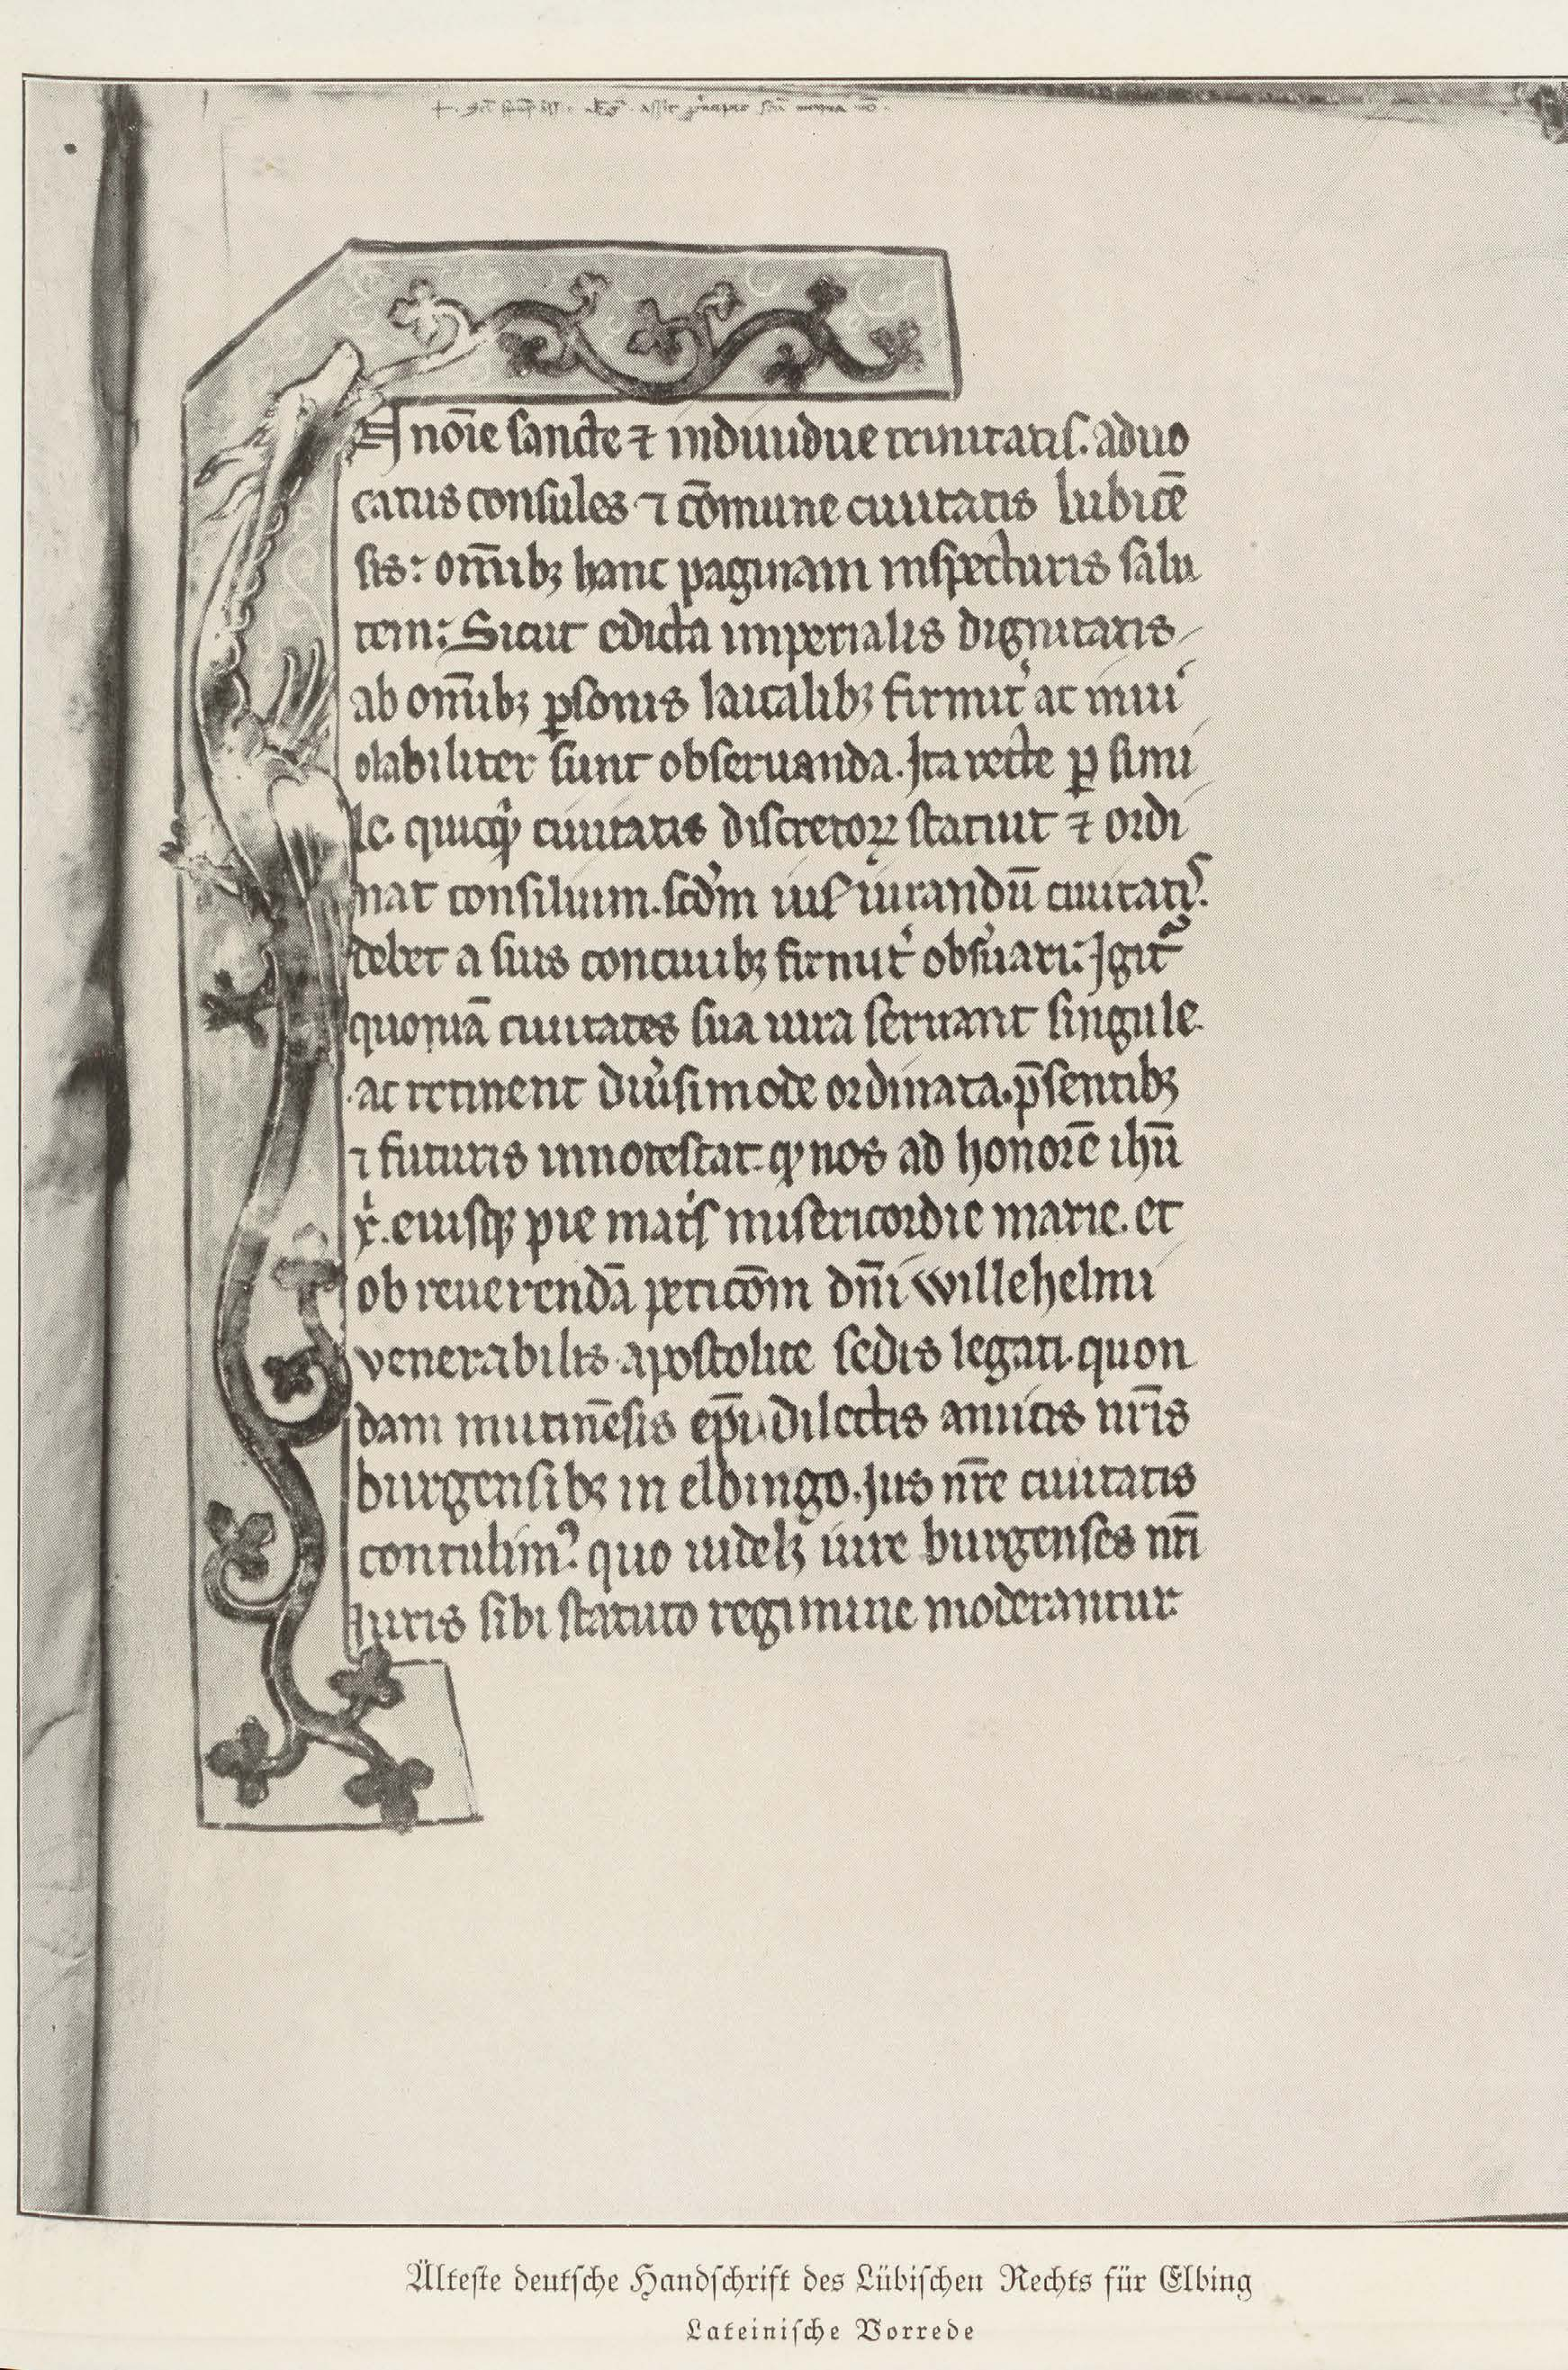 In no̅ie sancte ⁊ indiuidue trinitatis. aduo
catus consules ⁊ co̅mune ciuitatis lubice̅
sis: omn̅ibꝫ hanc paginam inspecturis salu
tem: Sicut edicta imperialis dignitatis
ab omn̅ibꝫ ꝑsonis laicalibꝫ firmit͛ ac inui
olabiliter sunt obseruanda. Ita recte ꝑ simi
le. quicqͥd ciuitatis discretoꝝ statuit ⁊ ordi
nat consilium. scd̅m ius iurandu̅ ciuitatis.
debet a suis conciuibꝫ firmit͛ obs͛uari: Igit᷑
quonia̅ ciuitates sua iura seruant singule.
ac retinent diu͛simode ordinata. p̅sentibꝫ
⁊ futuris innotescat. ꝙ nos ad honore̅ ihu̅
xͥ. eiusqꝫ pie matͥs misericordie marie. et
ob reuerenda̅ petico̅m dn̅i willehelmi
venerabilis apostolice sedis legati. quon
dam mutine̅sis ep̅i. dilectis amicis nr̅is
burgensibꝫ in elbingo. jus nr̅e ciuitatis
contulimꝰ. quo uidelꝫ iure burgenses nr̅i
iuris sibi statuto regimine moderantur.
Älteste deutsche Handschrift des Lübischen Rechts für Elbing
Lateinische Vorrede